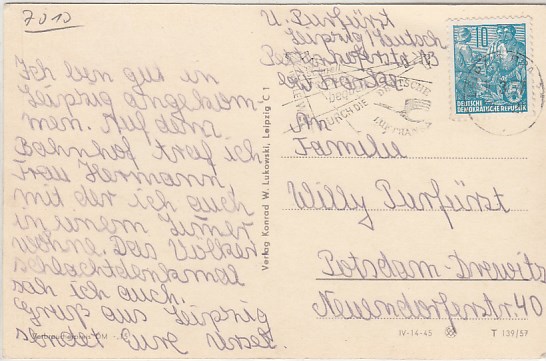 7010
Ich bin gut in
Leipzig angekom
men. Auf dem
Bahnhof traf ich
Frau Hermann,
mit der ich auch
in einem Zimer
wohne. Das Völker
schlachtdenkmal
sah ich auch.
Gruß aus Leipzig
sendet Eure Ursel.
Verlag Konrad W. Lukowski, Leipzig C 1
U. Purfürst
Leipzig/Deutsch
bei Franke
DEUTSCHE
DURCH DIE
LUFTHANSA
10
5
DEUTSCHE
DEMOKRATISCHE REPUBLIK
An
Familie
Willy Purfürst
Potsdam-Drewitz
Neuendorferstr. 40
IV-14-45
T 139/57